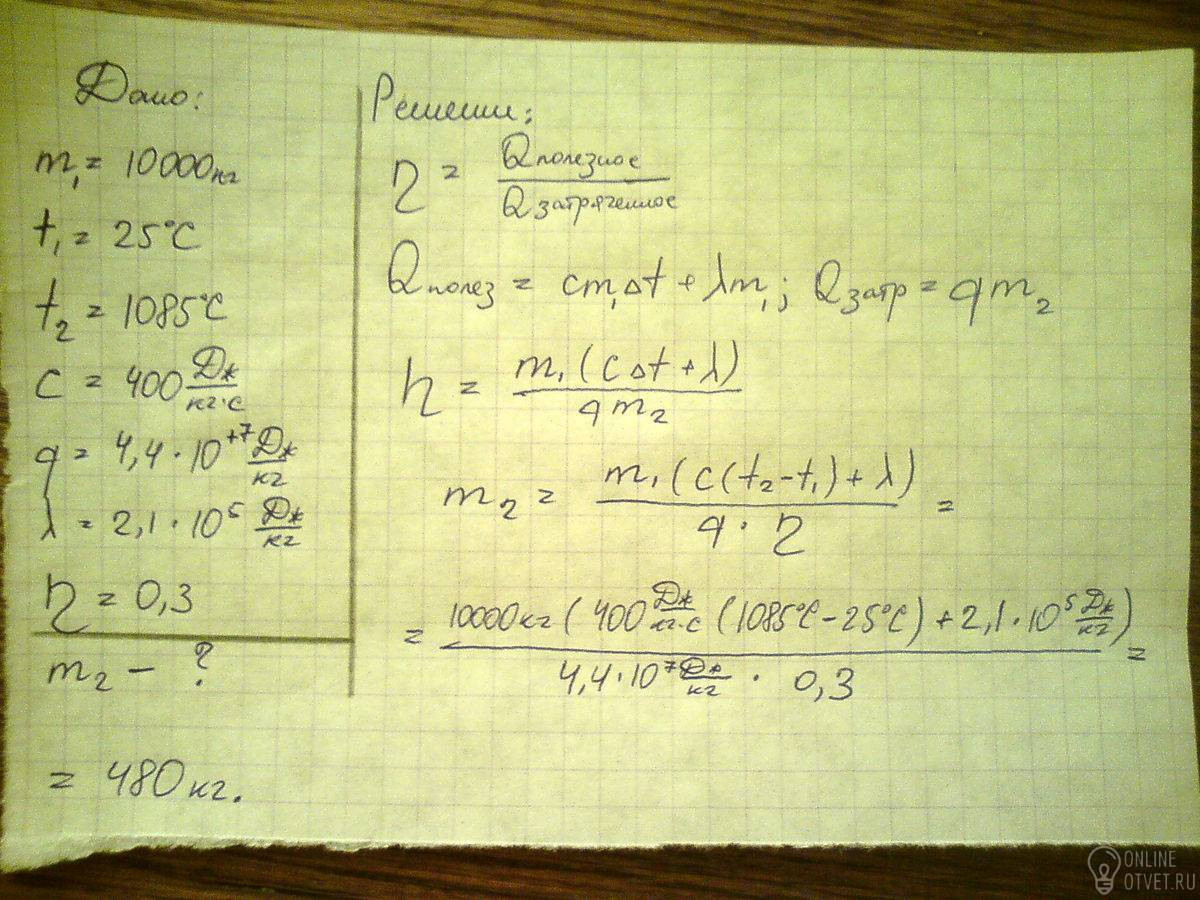 Дано:
m₁ = 10000кг
t₁ = 25°C
t₂ = 1085°C
c = 400 Дж/кг·с
q = 4,4·10⁺⁷ Дж/кг
λ = 2,1·10⁵ Дж/кг
η = 0,3
m₂ — ?
Решении:
η = Qполезное/Qзатраченное
Qполез = cm₁Δt + λm₁; Qзатр = qm₂
η = m₁(cΔt + λ)/qm₂
m₂ = m₁(c(t₂-t₁)+λ)/q·η =
= 10000кг(400 Дж/кг·с (1085°C-25°C)+2,1·10⁵ Дж/кг)/4,4·10⁷ Дж/кг · 0,3 =
= 480кг.
ONLINE
OTVET.RU